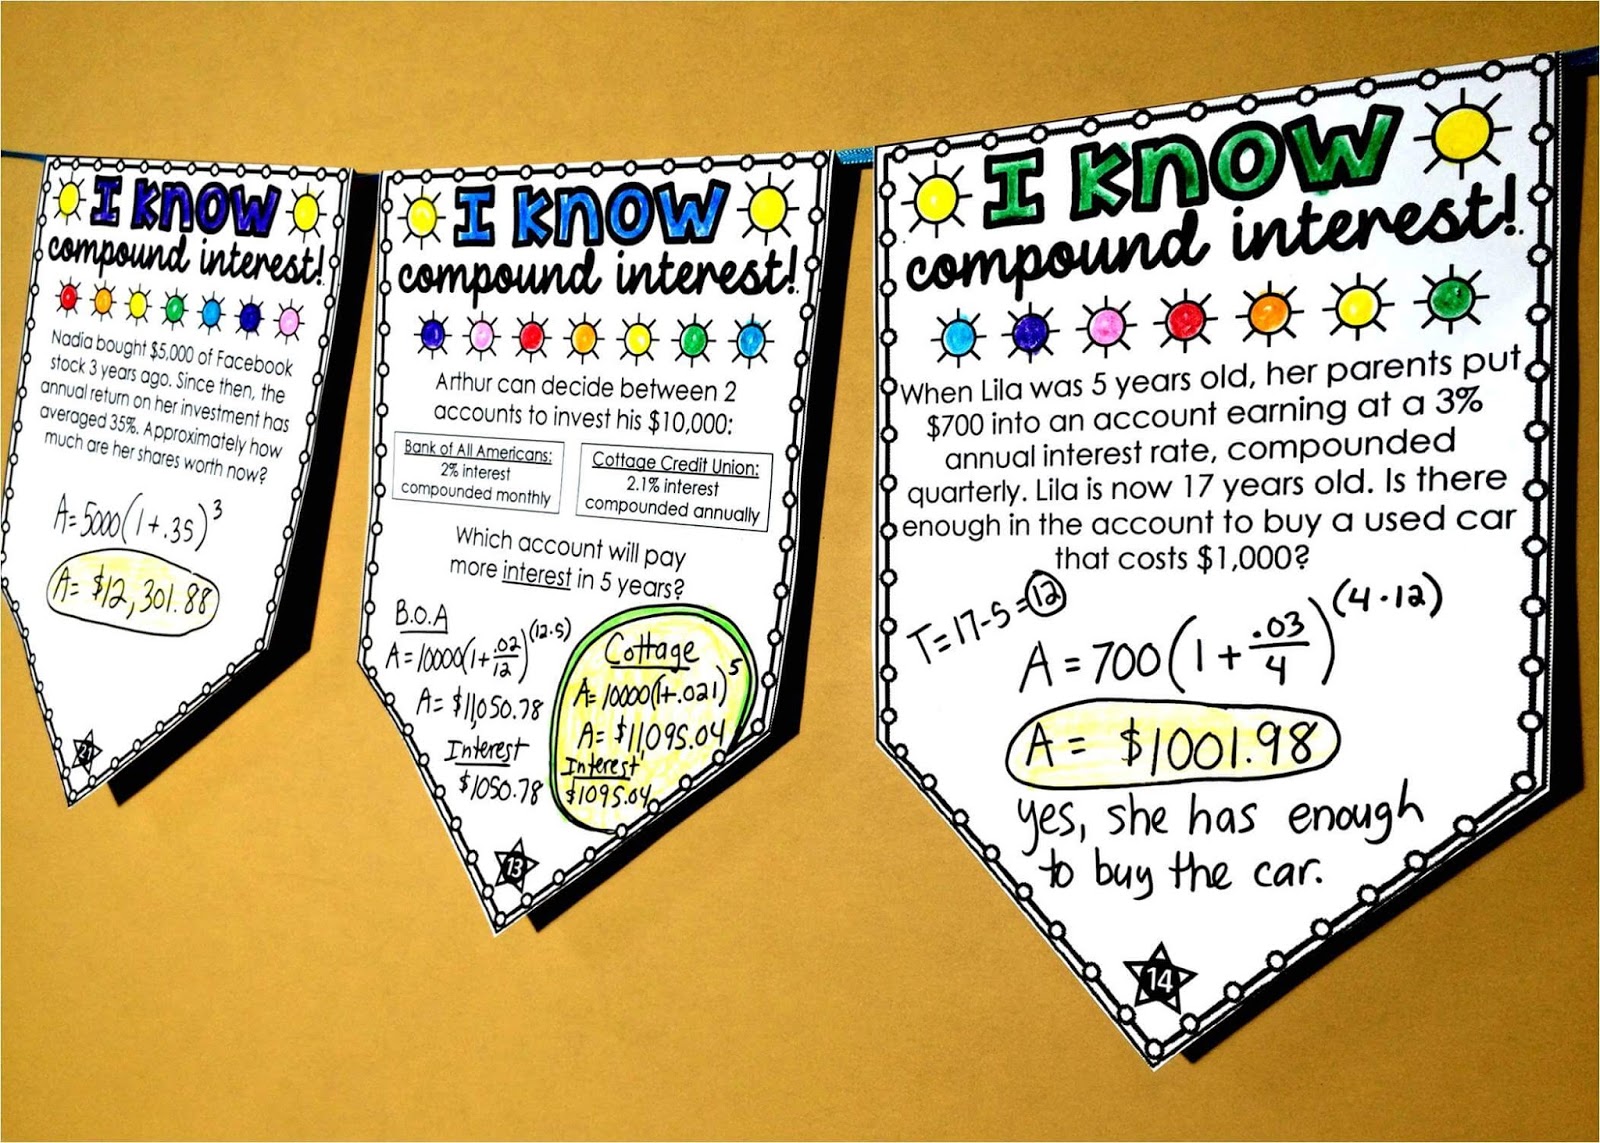 I KNOW
compound interest!
Nadia bought $5,000 of Facebook
stock 3 years ago. Since then, the
annual return on her investment has
averaged 35%. Approximately how
much are her shares worth now?
A=5000(1+.35)^3
A= $12,301.88
21
I KNOW
compound interest!
Arthur can decide between 2
accounts to invest his $10,000:
Bank of All Americans:
2% interest
compounded monthly
Cottage Credit Union:
2.1% interest
compounded annually
Which account will pay
more interest in 5 years?
B.O.A
A=10000(1+.02/12)^(12·5)
A= $11,050.78
Interest
$1050.78
Cottage
A=10000(1+.021)^5
A= $11,095.04
Interest
$1095.04
13
I KNOW
compound interest!
When Lila was 5 years old, her parents put
$700 into an account earning at a 3%
annual interest rate, compounded
quarterly. Lila is now 17 years old. Is there
enough in the account to buy a used car
that costs $1,000?
T=17-5=12
A=700(1+.03/4)^(4·12)
A= $1001.98
yes, she has enough
to buy the car.
14